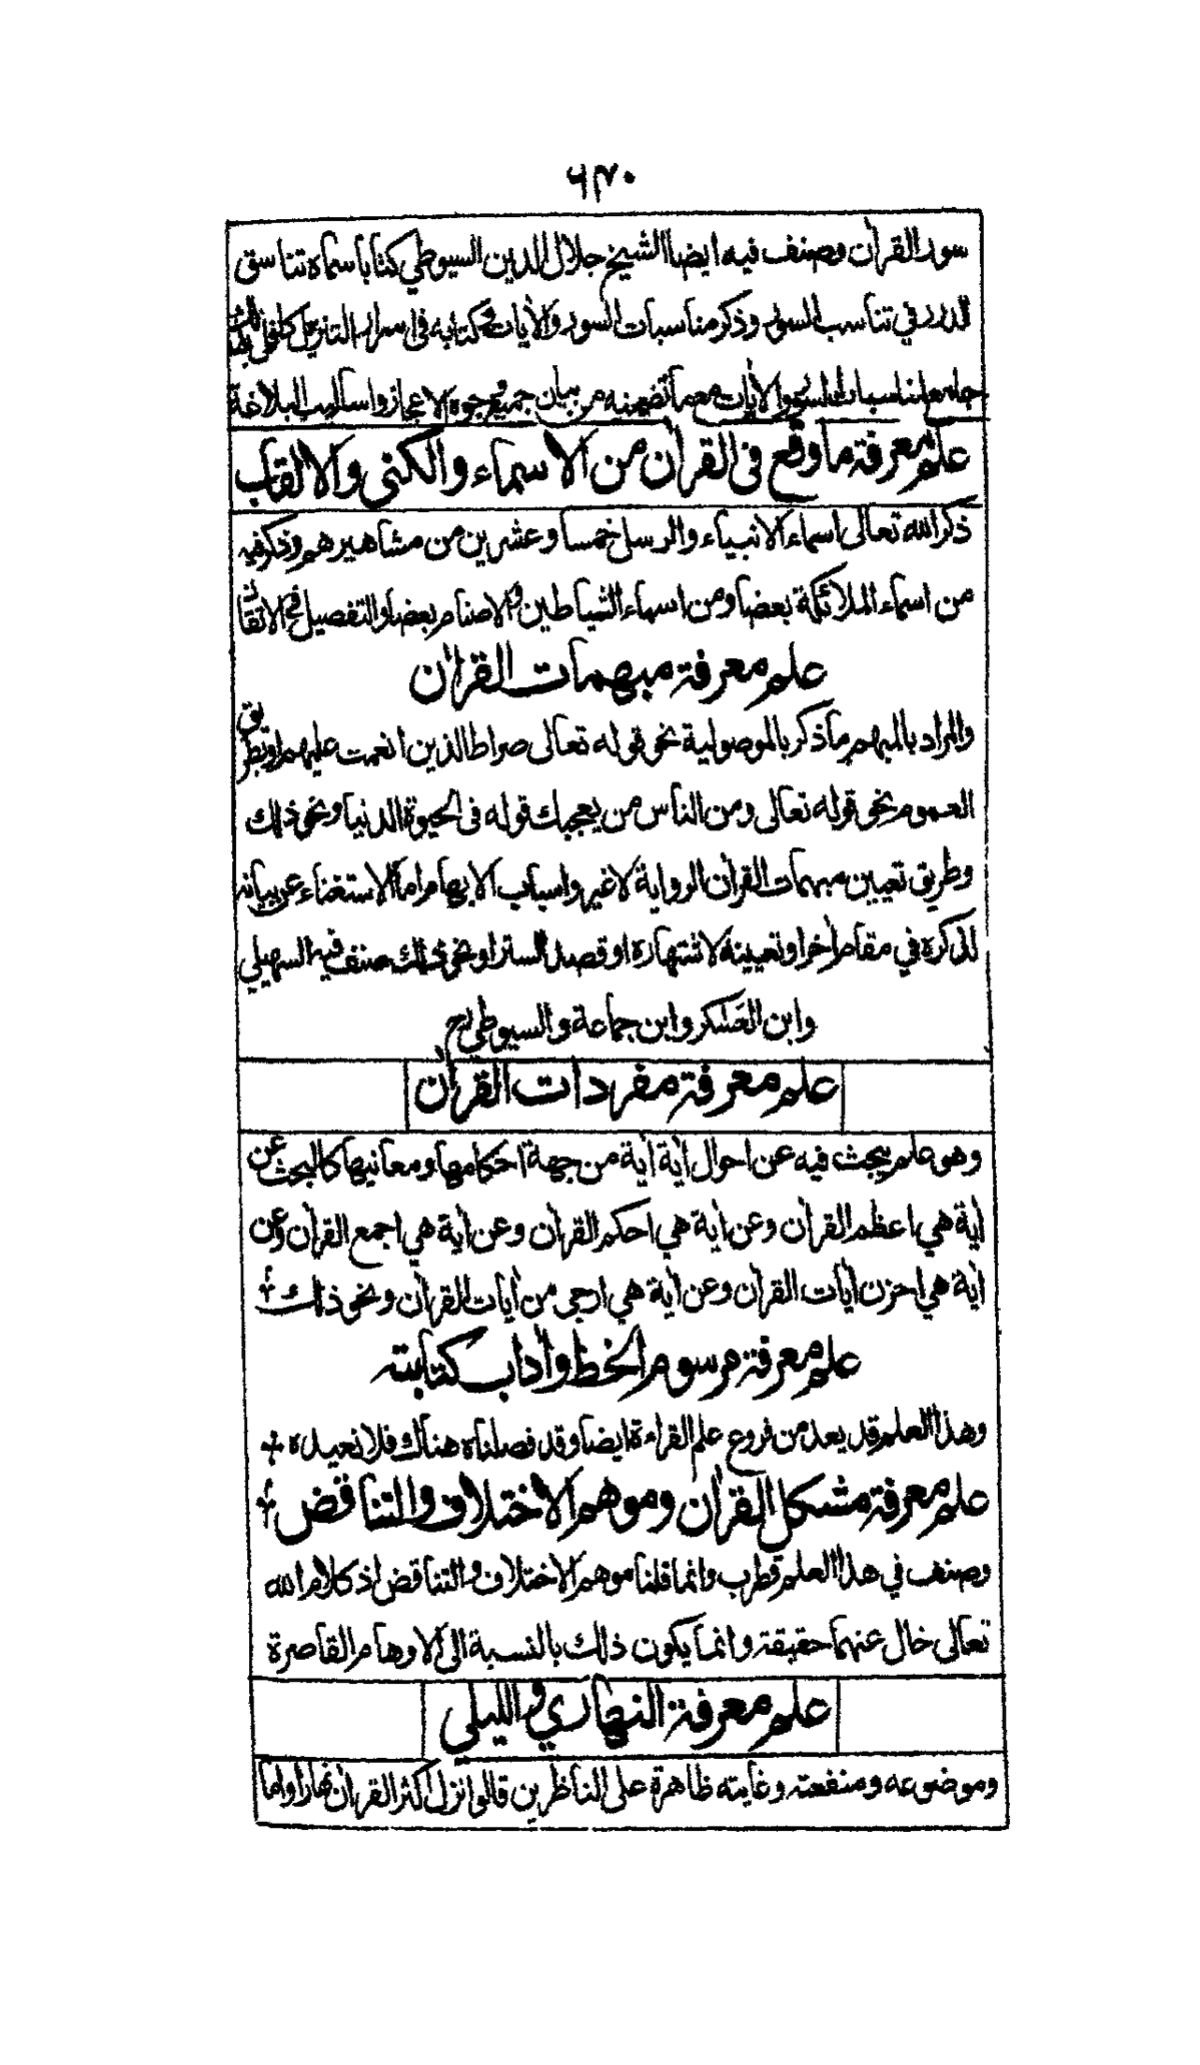 ۶۴۰
سور القرأن وصنف فيه ايضا الشيخ جلال الدين السيوطي كتابا سماه تناسق
الدرر في تناسب السور وذكر مناسبات السور والأيات في كتابه في اسرار التنزيل
جامع لمناسبات السور والأيات مع ما تضمنه من بيان جميع وجوه الاعجاز واساليب البلاغة
علم معرفة ما وقع فى القرأن من الاسماء والكنى والالقاب
ذكر الله تعالى اسماء الانبياء والرسل خمسا وعشرين من مشاهيرهم وذكر فيه
من اسماء الملائكة بعضا ومن اسماء الشياطين والاصنام بعضا والتفصيل في الاتقان
علم معرفة مبهمات القرأن
والمراد بالمبهم ما ذكر بالموصولية نحو قوله تعالى صراط الذين انعمت عليهم او بطريق
العموم نحو قوله تعالى ومن الناس من يعجبك قوله فى الحيوة الدنيا ونحو ذلك
وطريق تعيين مبهمات القرأن الرواية لا غير واسباب الابهام اما الاستغناء عن بيانه
لذكره في مقام أخر او تعيينه لاشتهاره او قصد الستر او نحو ذلك صنف فيه السهيلي
وابن العسكر وابن جماعة والسيوطي رح
علم معرفة مفردات القرأن
وهو علم يبحث فيه عن احوال أية أية من جهة احكامها ومعانيها كالبحث عن
أية هي اعظم القرأن وعن أية هي احكم القرأن وعن أية هي اجمع القرأن وعن
أية هي احزن أيات القرأن وعن أية هي ارجى من أيات القرأن ونحو ذلك
علم معرفة مرسوم الخط وأداب كتابته
وهذا العلم قد يعد من فروع علم القراءة ايضا وقد فصلناه هناك فلا نعيده
علم معرفة مشكل القرأن وموهم الاختلاف والتناقض
وصنف في هذا العلم قطرب وانما قلنا موهم الاختلاف والتناقض اذ كلام الله
تعالى خال عنهما حقيقة وانما يكون ذلك بالنسبة الى الاوهام القاصرة
علم معرفة النهاري والليلي
وموضوعه ومنفعته وغايته ظاهرة على الناظرين قالوا نزل اكثر القرأن نهارا واما